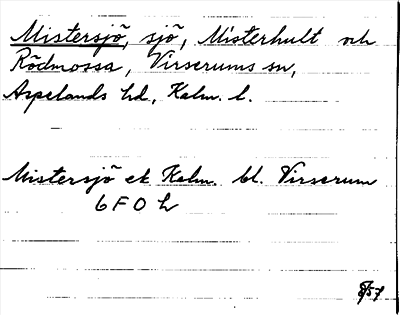 Mistersjö, sjö, Misterhult och
Rödmossa, Virserums sn,
Aspelands hd, Kalm. l.
Mistersjö ek Kalm. bl. Virserum
6 F O h
8/57